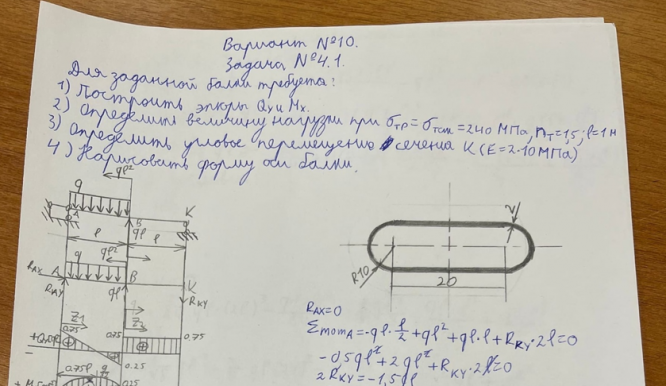 Вариант №10.
Задача №4.1.
Для заданной балки требуется:
1) Построить эпюры Qy и Mx.
2) Определить величину нагрузки при σтр = σтсж = 240 МПа, nт = 1,5; l = 1м
3) Определить угловое перемещение сечения K (E = 2·10 МПа)
4) Нарисовать форму оси балки.
ql²
q
A
B
K
l
l
q
ql²
RAX
A
B
K
RAY
ql
RKY
Z1
Z2
0.75
0.75
0.75
0.25
0.25
0.75l
2
R10
20
RAX=0
ΣmomA = -ql·l/2 + ql² + ql·l + RKY·2l = 0
-0,5ql² + 2ql² + RKY·2l = 0
2RKY = -1,5ql